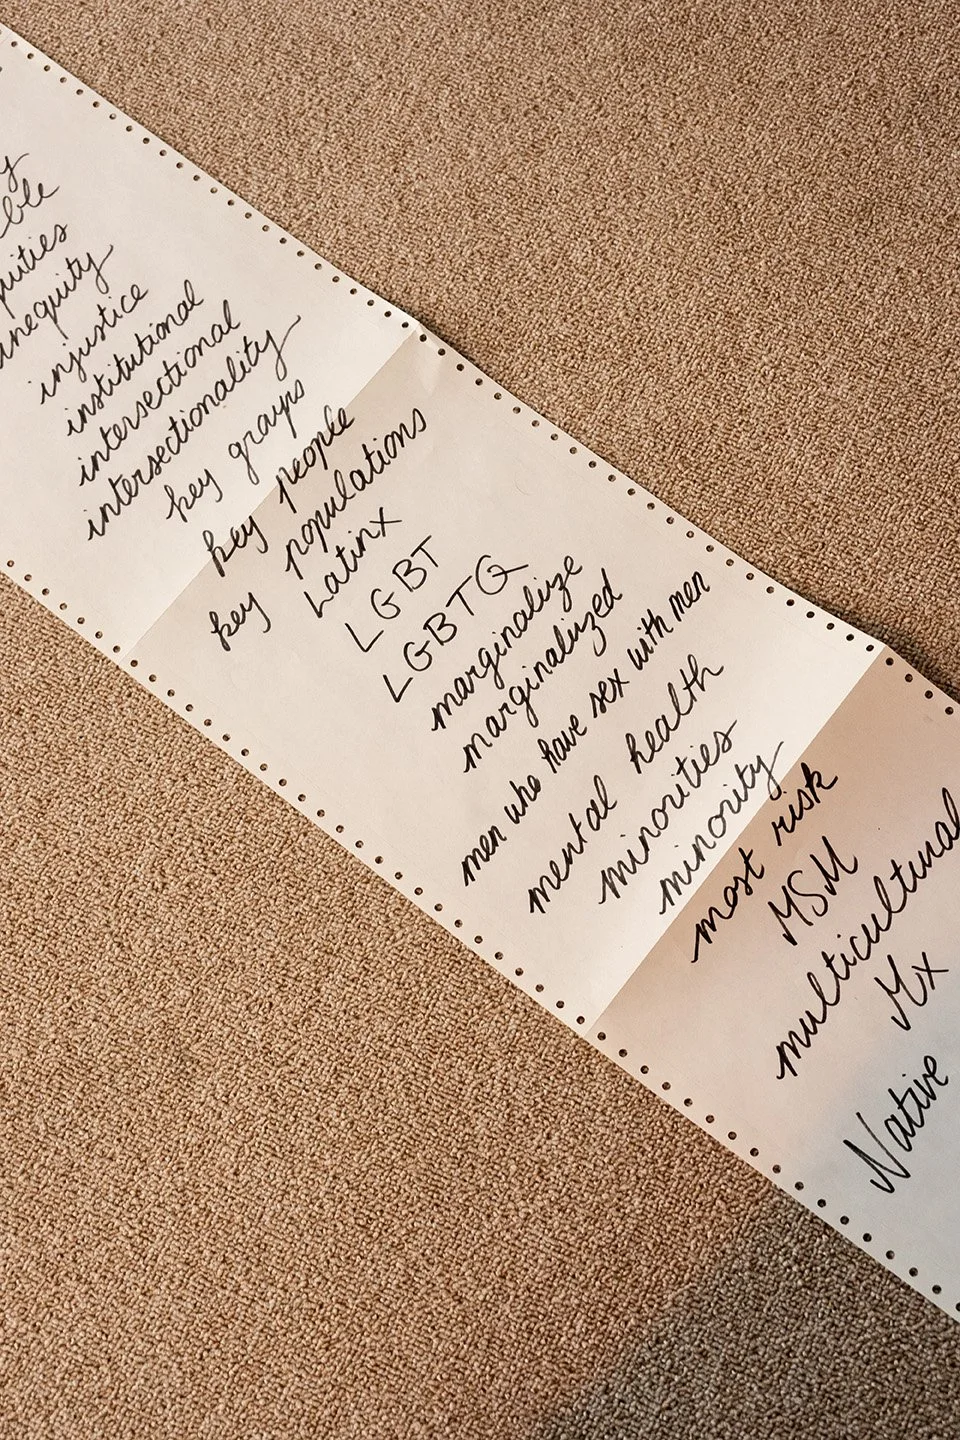 ble
quities
inequity
injustice
institutional
intersectional
intersectionality
key groups
key people
key populations
Latinx
LGBT
LGBTQ
marginalize
marginalized
men who have sex with men
mental health
minorities
minority
most risk
MSM
multicultural
Mx
Native